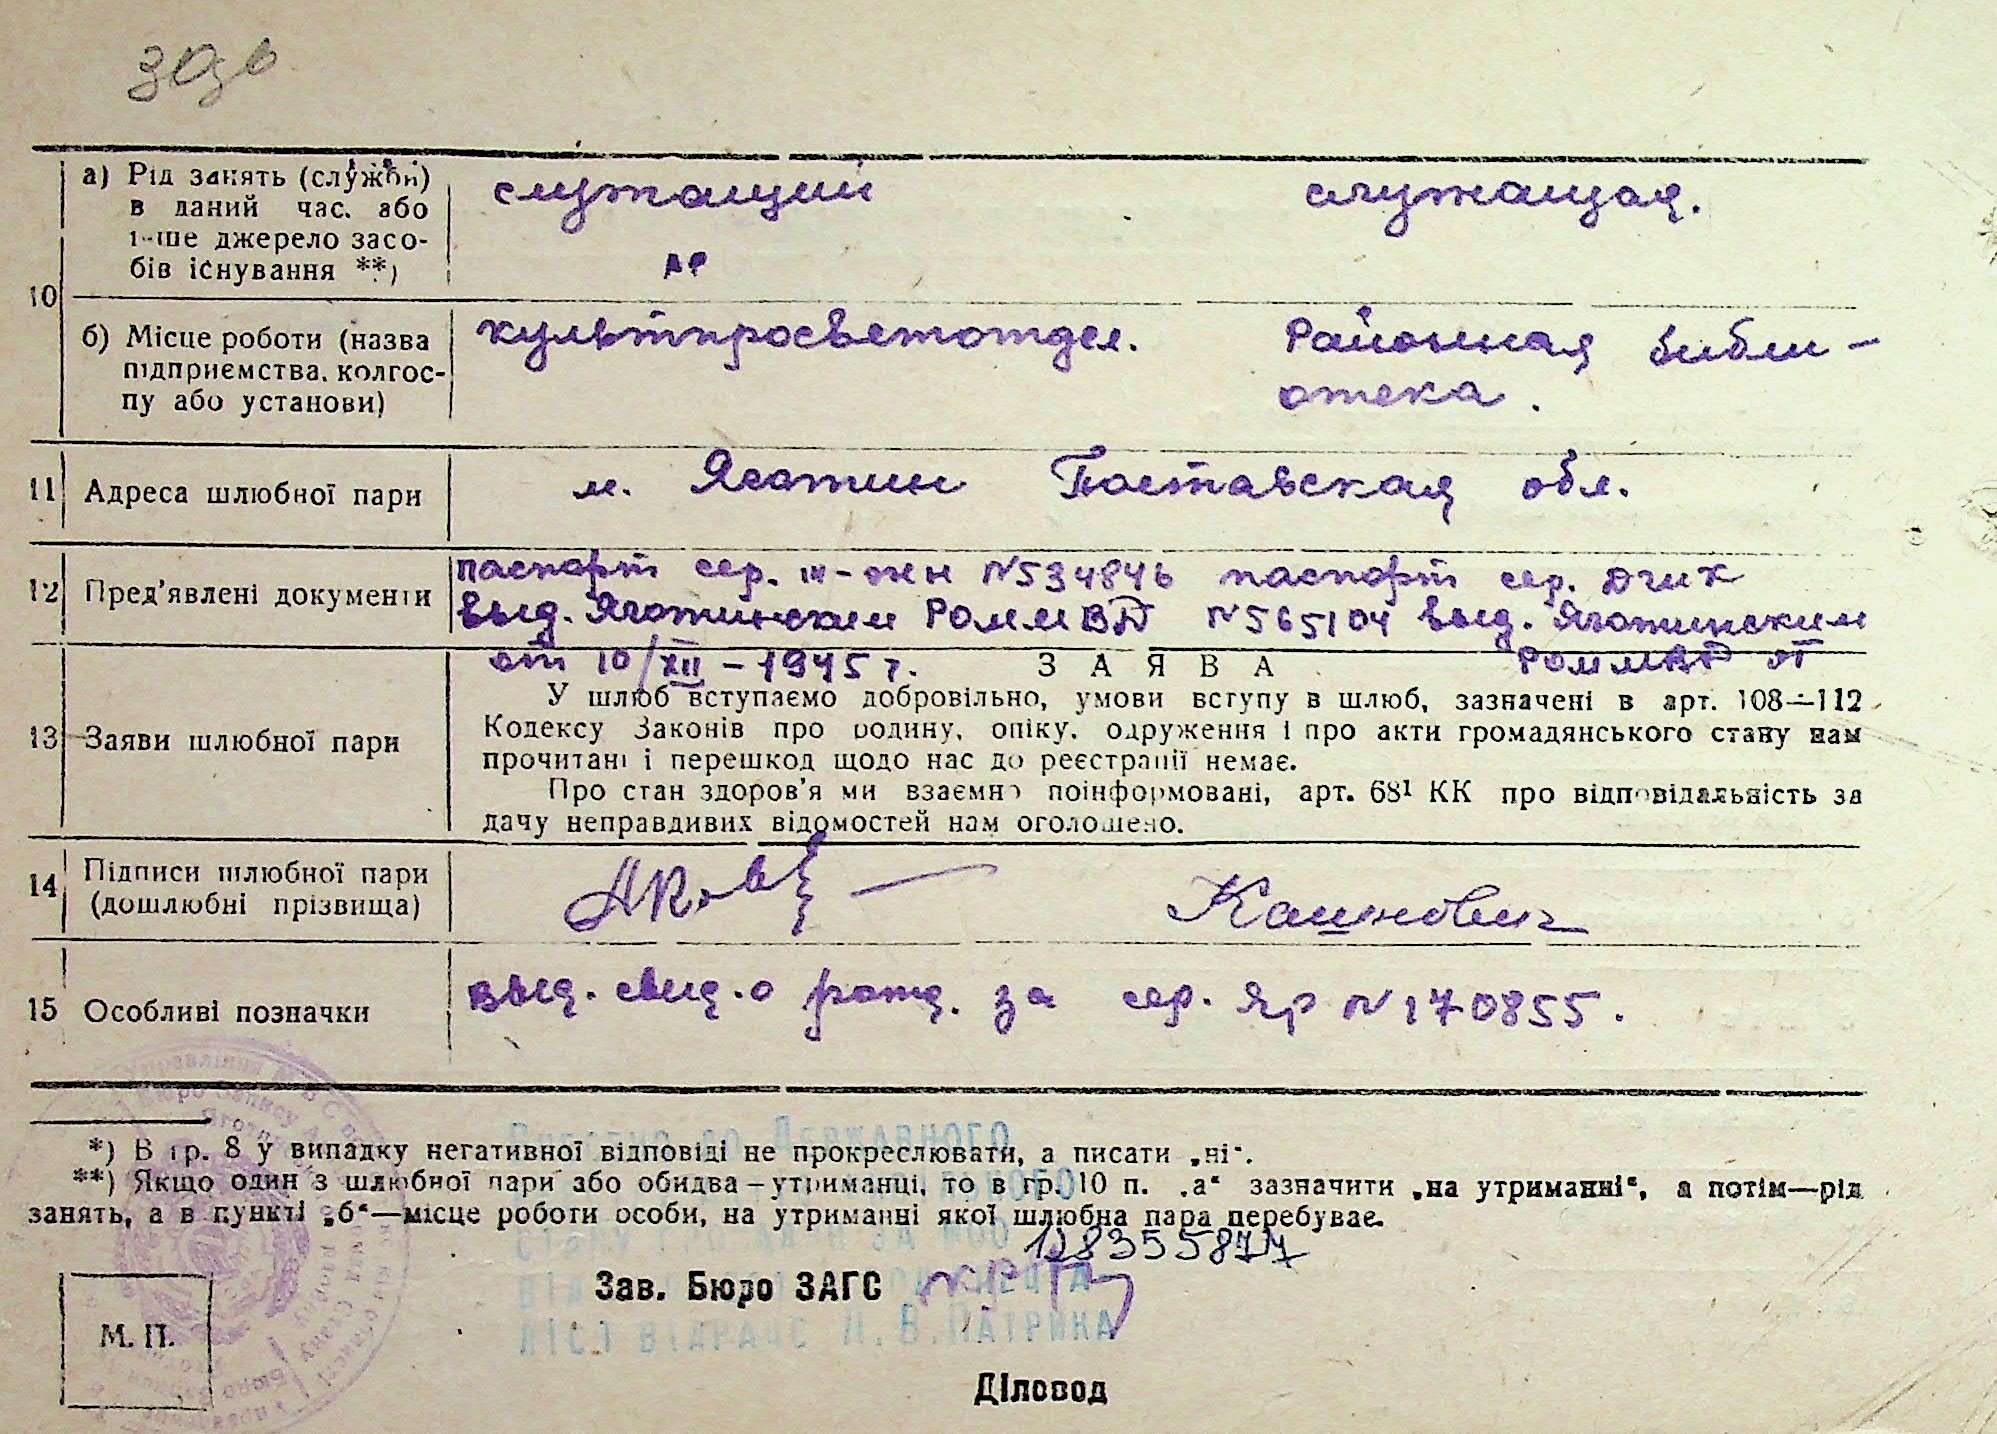 30зв
а) Рід занять (служби) в даний час. або інше джерело засобів існування **) служащий служащая.
10
б) Місце роботи (назва підприємства, колгоспу або установи) культпросветотдел. Районная библи-
отека.
11 Адреса шлюбної пари м. Яготин Полтавская обл.
12 Пред’явлені документи паспорт сер. III-жн N534846 паспорт сер.
выд. Яготинским РОММВД N565104 выд. Яготинским
от 10/XII-1945 г. РОММВД от
ЗАЯВА
13 Заяви шлюбної пари
У шлюб вступаємо добровільно, умови вступу в шлюб, зазначені в арт. 108—112
Кодексу Законів про родину, опіку, одруження і про акти громадянського стану нам
прочитані і перешкод щодо нас до реєстрації немає.
Про стан здоров’я ми взаємно поінформовані, арт. 68¹ КК про відповідальність за
дачу неправдивих відомостей нам оголошено.
14 Підписи шлюбної пари
(дошлюбні прізвища)
15 Особливі позначки выд. свид. о рожд. за сер. ЯР N170855.
*) В гр. 8 у випадку негативної відповіді не прокреслювати, а писати „ні“.
**) Якщо один з шлюбної пари або обидва—утриманці, то в гр. 10 п. „а“ зазначити „на утриманні“, а потім—рід
занять, а в пункті „б“—місце роботи особи, на утриманні якої шлюбна пара перебуває.
Зав. Бюро ЗАГС
М. П.
Діловод